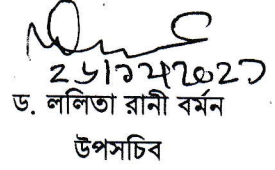 ড. ললিতা রানী বর্মন
উপসচিব